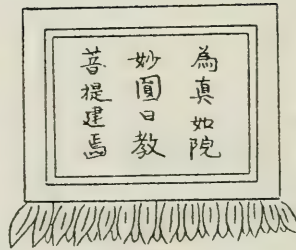 為真如院
妙圓日教
菩提建焉